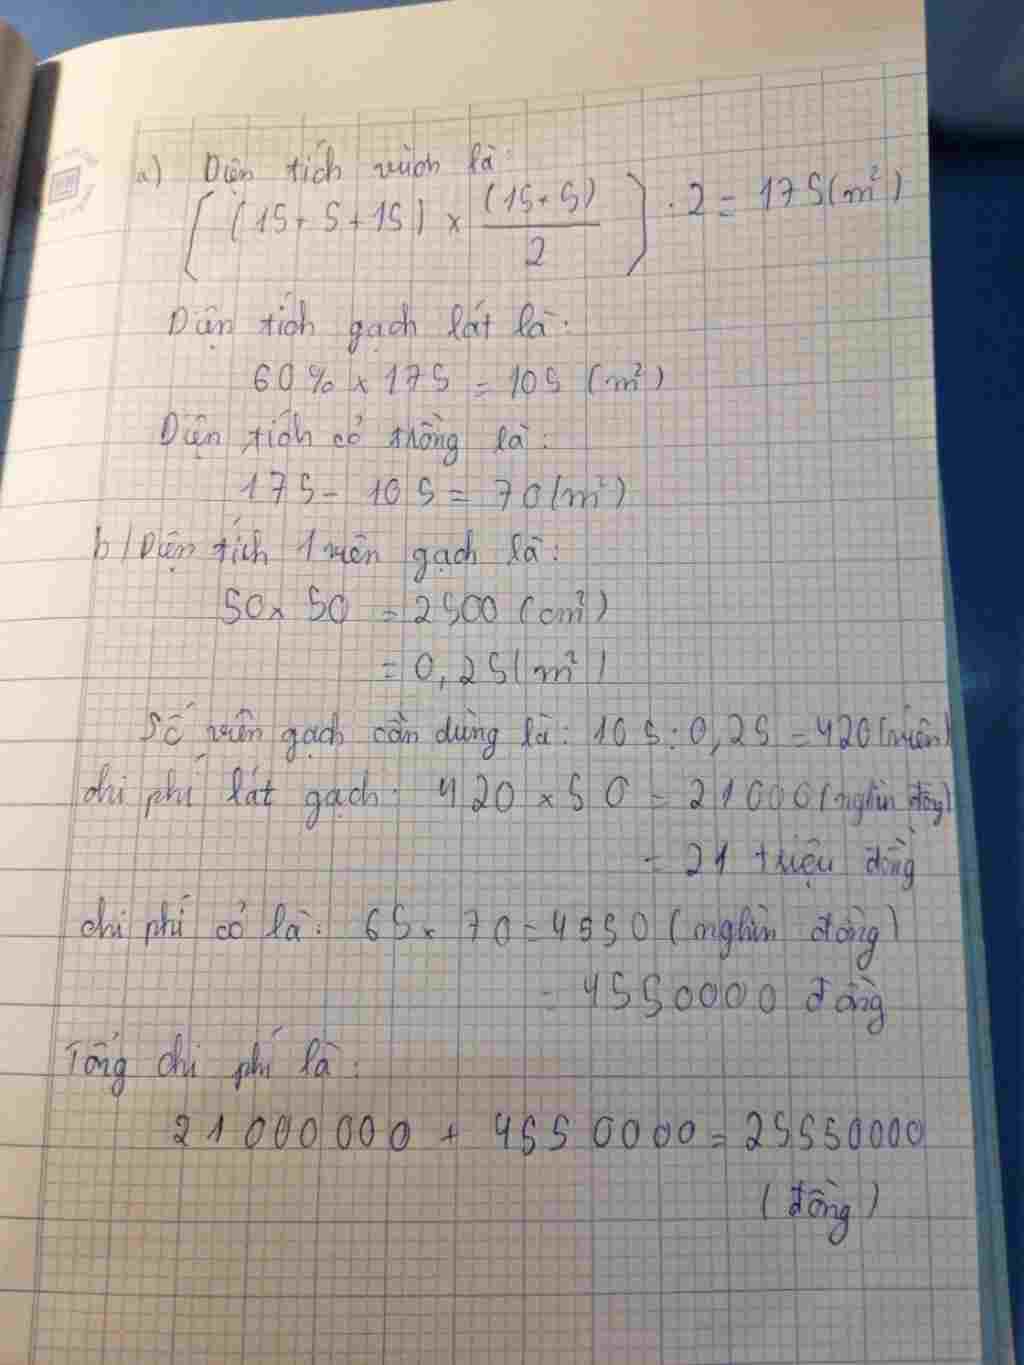 a) Diện tích vườn là:
[(15+5+15) × (15+5)/2] . 2 = 175(m²)
Diện tích gạch lát là:
60% × 175 = 105 (m²)
Diện tích cỏ trồng là:
175 - 105 = 70(m²)
b/ Diện tích 1 viên gạch là:
50 × 50 = 2500 (cm²)
= 0,25(m²)
Số viên gạch cần dùng là: 105:0,25 = 420(viên)
chi phí lát gạch: 420 × 50 = 21000(nghìn đồng)
= 21 triệu đồng
chi phí cỏ là: 65 × 70 = 4550 (nghìn đồng)
= 4550000 đồng
Tổng chi phí là:
21 000 000 + 455 0000 = 25550000
(đồng)